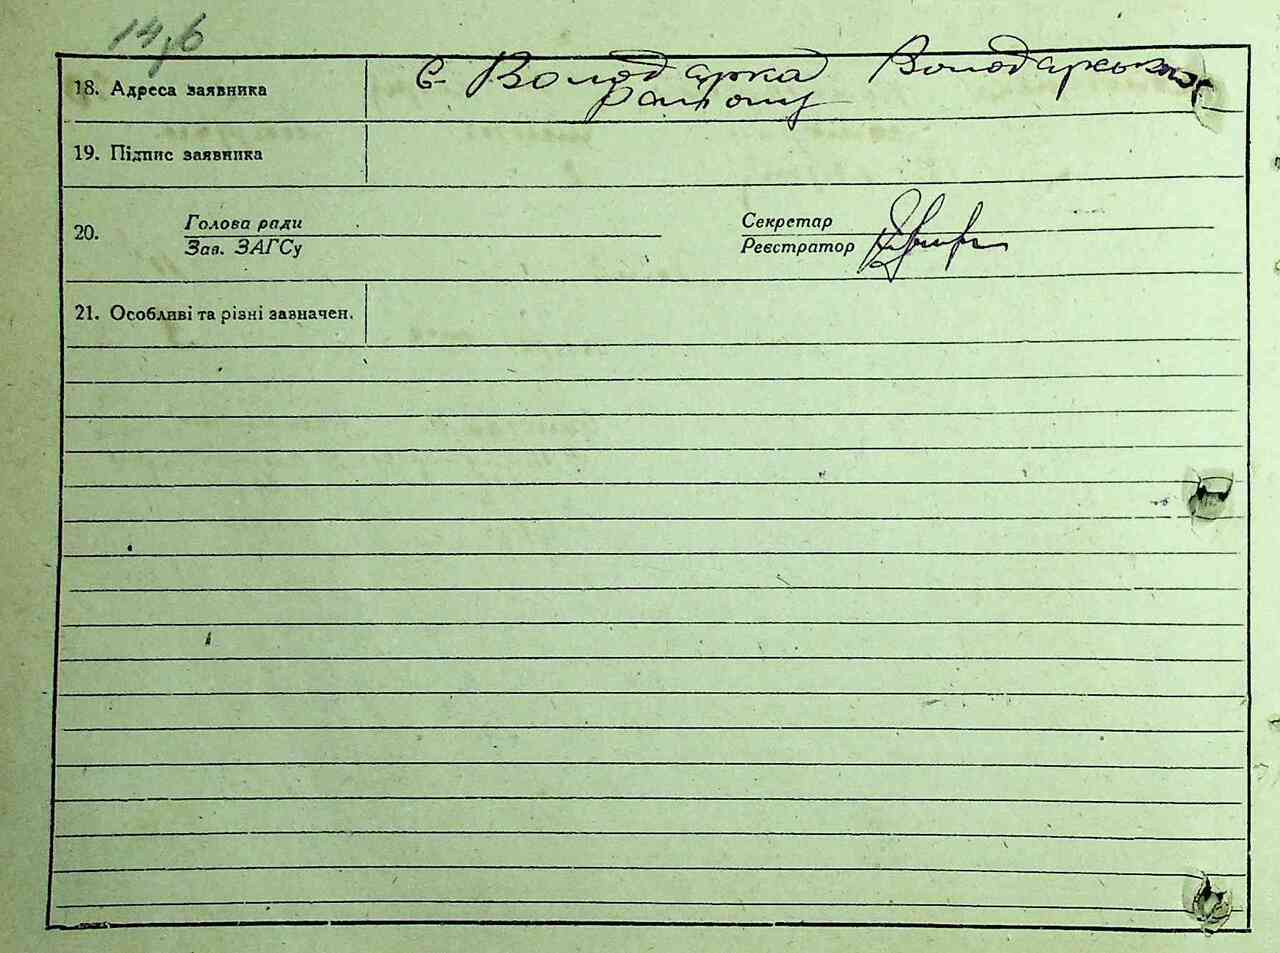 14,6
18. Адреса заявника с Володарка Володарського
району
19. Підпис заявника
20. Голова ради Секретар
Зав. ЗАГСу Реєстратор
21. Особливі та різні зазначен.